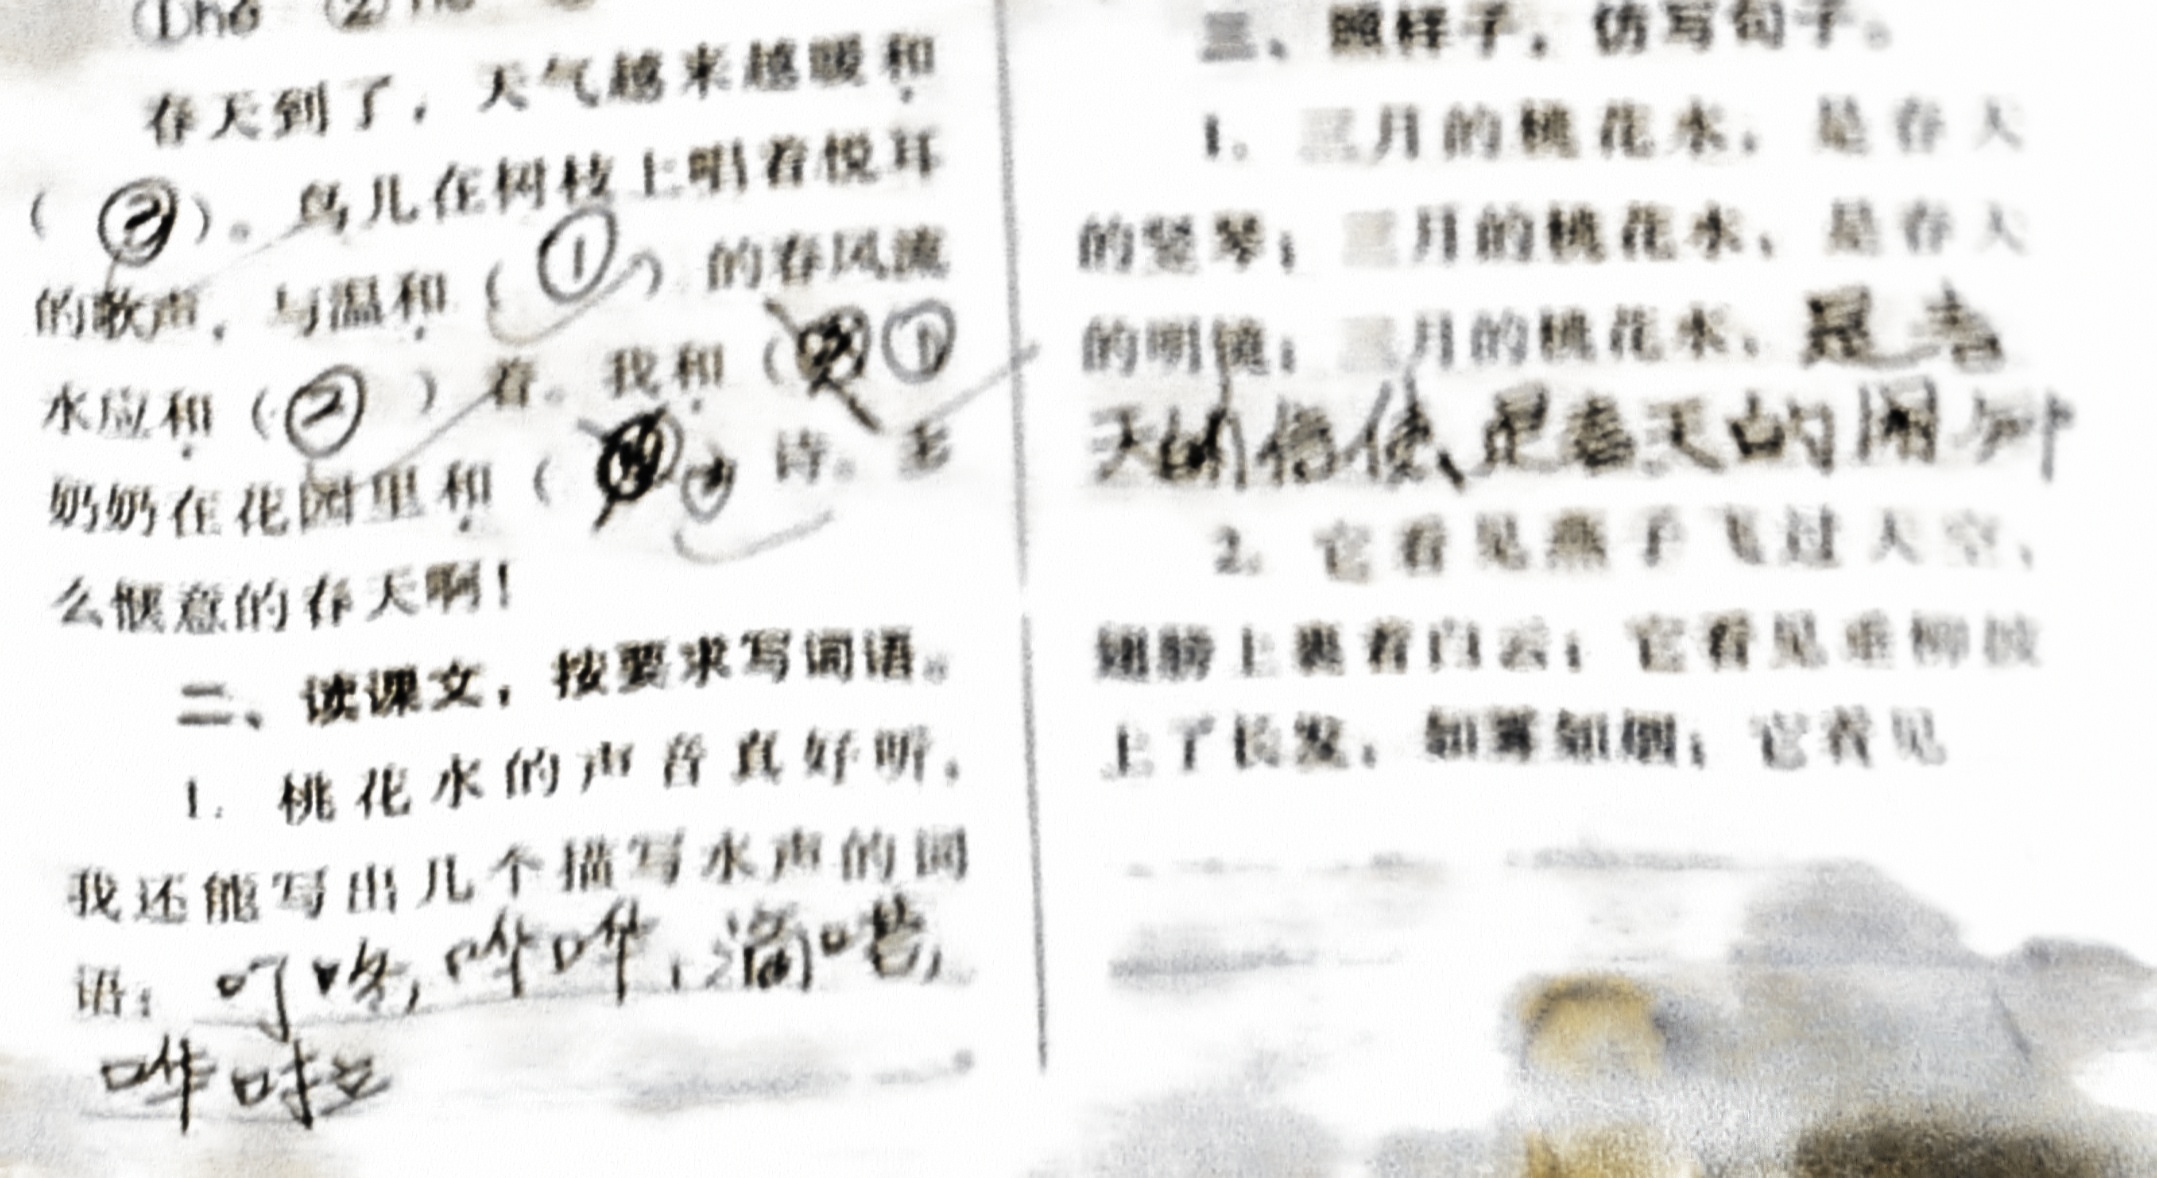 ①hé ②hè
春天到了，天气越来越暖和
（②）。鸟儿在树枝上唱着悦耳
的歌声，与温和（①）的春风流
水应和（②）着。我和（①
奶奶在花园里和（②）诗。多
么惬意的春天啊！
二、读课文，按要求写词语。
1. 桃花水的声音真好听，
我还能写出几个描写水声的词
语：叮咚，哗哗，滴嗒，
哗啦
三、照样子，仿写句子。
1. 三月的桃花水，是春天
的竖琴；三月的桃花水，是春天
的明镜；三月的桃花水，是春
天的信使、是春天的闹钟
2. 它看见燕子飞过天空，
翅膀上裹着白云；它看见垂柳披
上了长发，如雾如烟；它看见